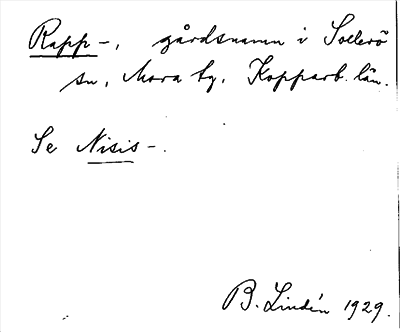 Rapp-, gårdsnamn i Sollerö
sn, Mora tg, Kopparb. län.
Se Nisis-.
B. Lindén 1929.